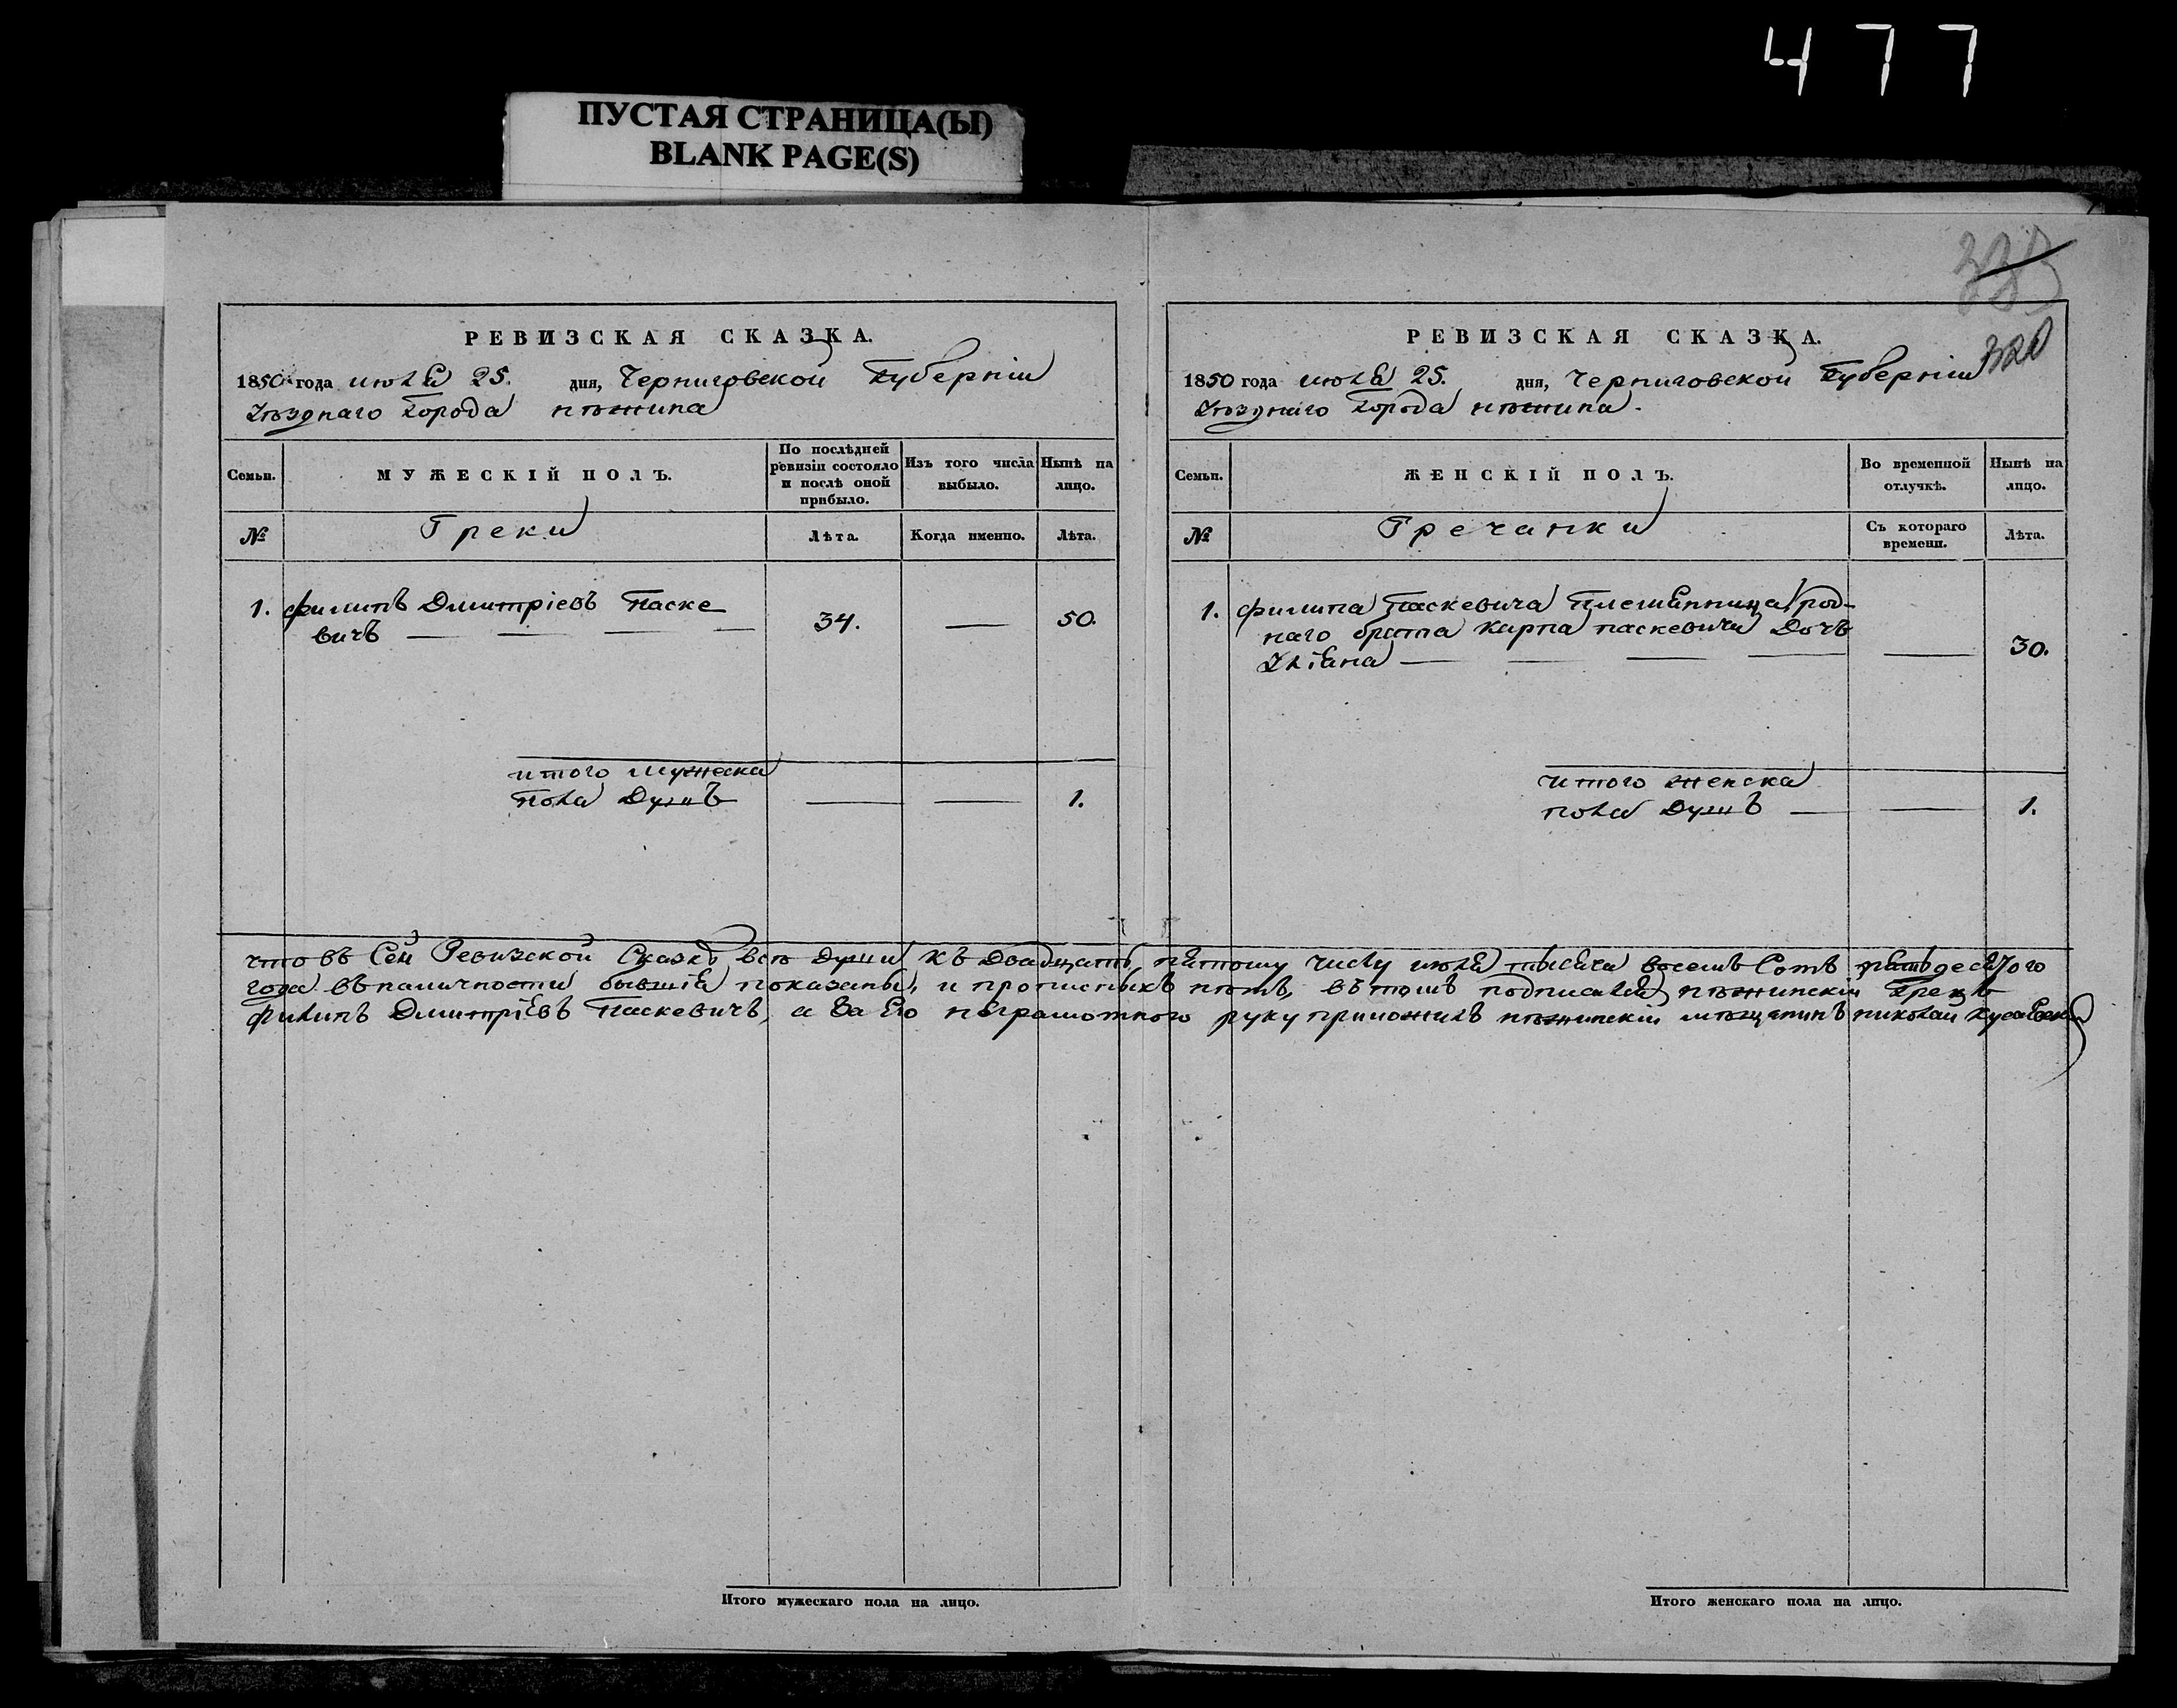 477
ПУСТАЯ СТРАНИЦА(Ы)
BLANK PAGE(S)
320
РЕВИЗСКАЯ СКАЗКА.
1850 года июля 25. дня, Черниговской Губерніи
Уѣзднаго Города нѣжина
Семьи.
МУЖЕСКІЙ ПОЛЪ.
По послѣдней ревизіи состояло и послѣ оной прибыло.
Изъ того числа выбыло.
Нынѣ на лицо.
№
Греки
Лѣта.
Когда именно.
Лѣта.
1. Филипъ Дмитріевъ Паске
вичъ 34. 50.
итого мужеска
пола Душъ 1.
РЕВИЗСКАЯ СКАЗКА.
1850 года июля 25. дня, Черниговской Губерніи
Уѣзднаго Города нѣжина.
Семьи.
ЖЕНСКІЙ ПОЛЪ.
Во временной отлучкѣ.
Нынѣ на лицо.
№
Гречанки
Съ котораго времени.
Лѣта.
1. Филипа Паскевича Племянница, род-
наго брата Карпа паскевича Дочь
Уліяна 30.
итого женска
пола Душъ 1.
что въ Сей Ревизской Сказкѣ всѣ души къ Двадцать пятому числу июля тысяча восемь Сотъ пятьдесятого
года въ наличности бывшія показаны, и прописныхъ нѣтъ, въ томъ подписался нѣжинскій Грекъ
Филипъ Дмитріевъ Паскевичъ, а за Его неграмотного руку приложилъ нѣжинскій мѣщанинъ николай
Итого мужескаго пола на лицо.
Итого женскаго пола на лицо.